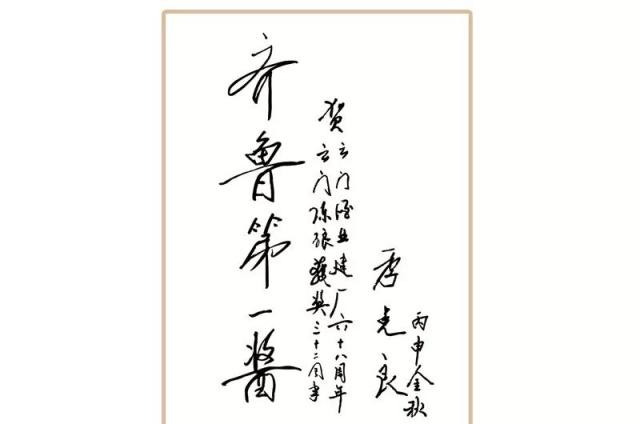 齐鲁第一酱
贺
云门酒业建厂六十八周年
云门陈酿獲奖三十二周年
季克良
丙申金秋